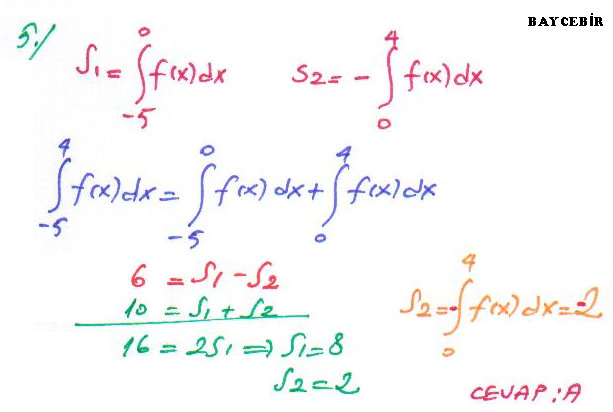 BAYCEBİR
5./
S₁ = ∫₋₅⁰ f(x)dx    S₂ = - ∫₀⁴ f(x)dx
∫₋₅⁴ f(x)dx = ∫₋₅⁰ f(x)dx + ∫₀⁴ f(x)dx
6 = S₁ - S₂
10 = S₁ + S₂
16 = 2S₁ ⇒ S₁ = 8
S₂ = 2
S₂ = -∫₀⁴ f(x)dx = -2
CEVAP : A